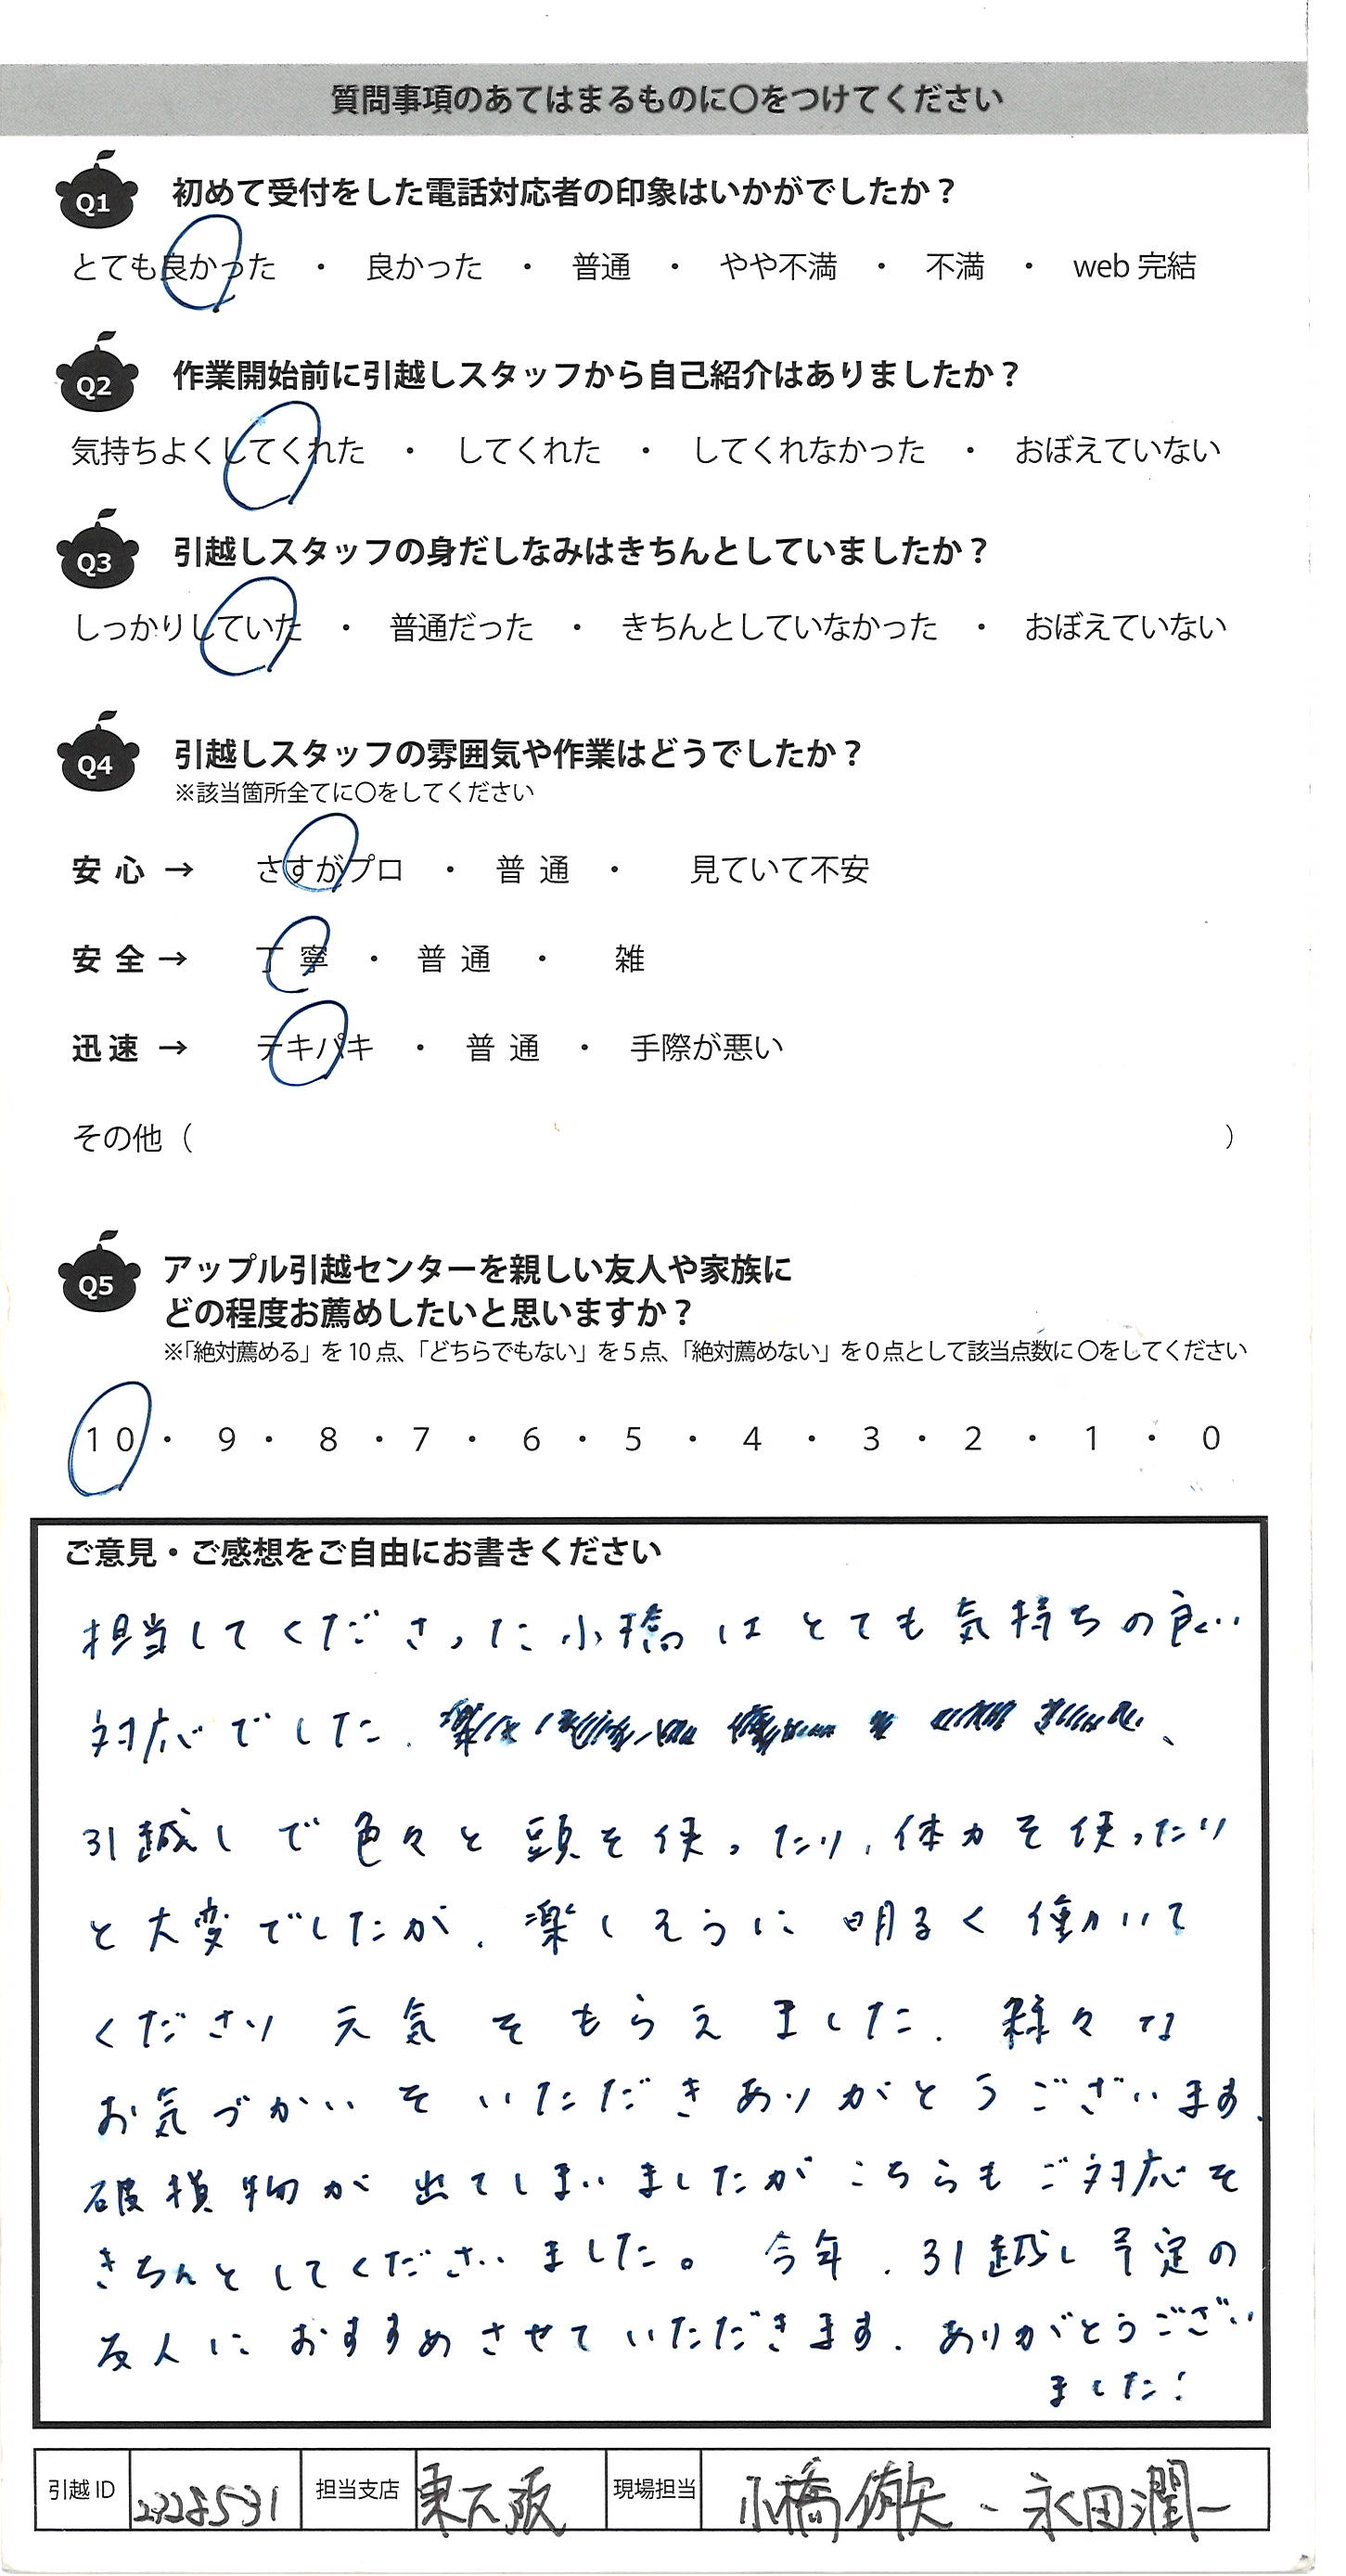 質問事項のあてはまるものに〇をつけてください
Q1 初めて受付をした電話対応者の印象はいかがでしたか？
とても良かった ・ 良かった ・ 普通 ・ やや不満 ・ 不満 ・ web 完結
Q2 作業開始前に引越しスタッフから自己紹介はありましたか？
気持ちよくしてくれた ・ してくれた ・ してくれなかった ・ おぼえていない
Q3 引越しスタッフの身だしなみはきちんとしていましたか？
しっかりしていた ・ 普通だった ・ きちんとしていなかった ・ おぼえていない
Q4 引越しスタッフの雰囲気や作業はどうでしたか？
※該当箇所全てに〇をしてください
安心 → さすがプロ ・ 普通 ・ 見ていて不安
安全 → 丁寧 ・ 普通 ・ 雑
迅速 → テキパキ ・ 普通 ・ 手際が悪い
その他（ ）
Q5 アップル引越センターを親しい友人や家族に
どの程度お薦めしたいと思いますか？
※「絶対薦める」を 10 点、「どちらでもない」を 5 点、「絶対薦めない」を 0 点として該当点数に 〇をしてください
10 ・ 9 ・ 8 ・ 7 ・ 6 ・ 5 ・ 4 ・ 3 ・ 2 ・ 1 ・ 0
ご意見・ご感想をご自由にお書きください
担当してくださった小橋はとても気持ちの良い
対応でした.
引越しで色々と頭を使ったり、体力を使ったり
と大変でしたが、楽しそうに明るく働いて
くださり元気をもらえました. 様々な
お気づかいをいただきありがとうございます.
破損物が出てしまいましたがこちらもご対応を
きちんとしてくださいました。今年、引越し予定の
友人におすすめさせていただきます. ありがとうござい
ました!
引越 ID 担当支店 東大阪 現場担当 小橋 ・永田潤一